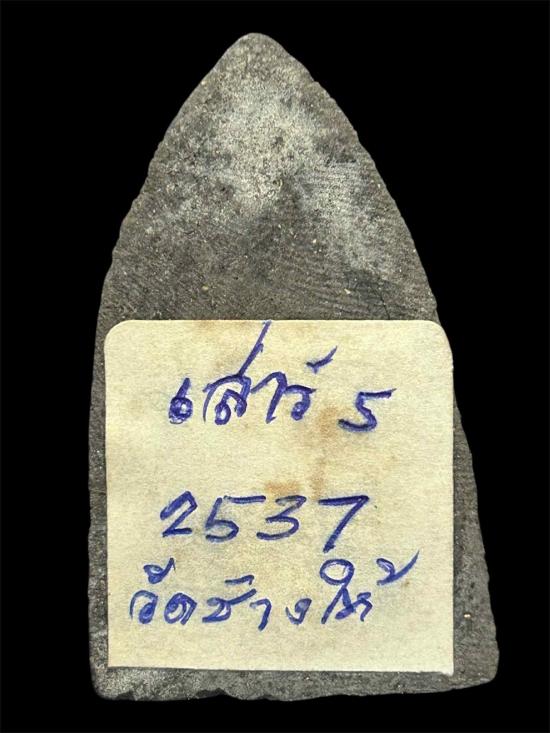 เสาร์ 5
2537
วัดช้างให้